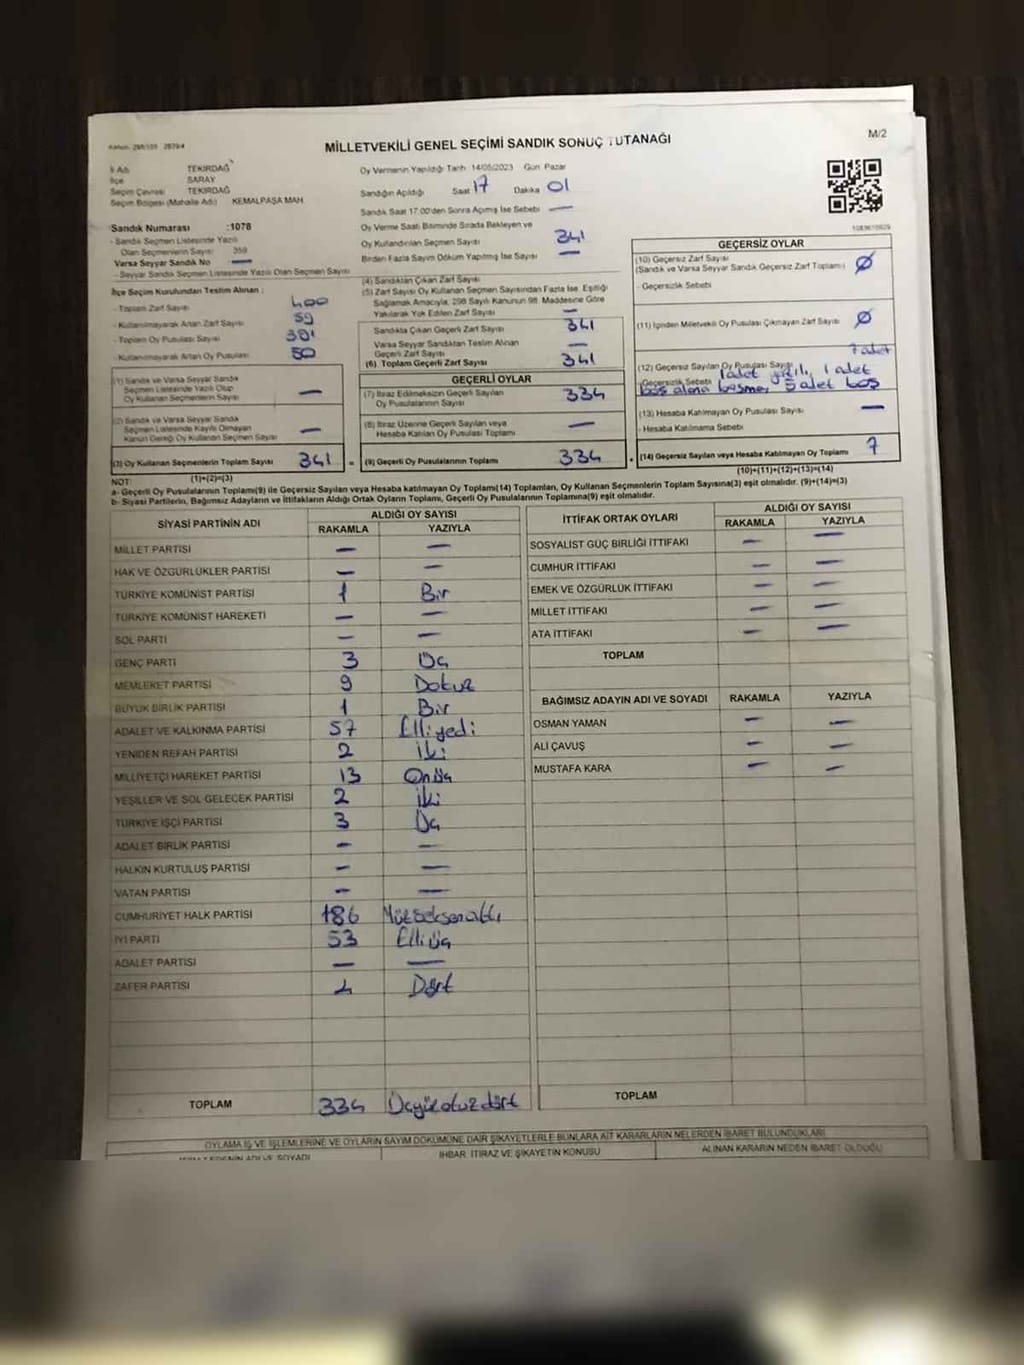 MİLLETVEKİLİ GENEL SEÇİMİ SANDIK SONUÇ TUTANAĞI
M/2
İl Adı TEKİRDAĞ
İlçe SARAY
Seçim Çevresi TEKİRDAĞ
Seçim Bölgesi (Mahalle Adı) KEMALPAŞA MAH
Sandık Numarası :1078
- Sandık Seçmen Listesinde Yazılı
Olan Seçmenlerin Sayısı 359
Varsa Seyyar Sandık No —
- Seyyar Sandık Seçmen Listesinde Yazılı Olan Seçmen Sayısı
İlçe Seçim Kurulundan Teslim Alınan :
- Toplam Zarf Sayısı 400
- Kullanılmayarak Artan Zarf Sayısı 59
- Toplam Oy Pusulası Sayısı
- Kullanılmayarak Artan Oy Pusulası 50
Oy Vermenin Yapıldığı Tarih 14/05/2023 Gün Pazar
Sandığın Açıldığı Saat 17 Dakika 01
Sandık Saat 17.00'den Sonra Açılmış İse Sebebi —
Oy Verme Saati Bitiminde Sırada Bekleyen ve
Oy Kullandırılan Seçmen Sayısı 341
Birden Fazla Sayım Döküm Yapılmış İse Sayısı —
(1) Sandık ve Varsa Seyyar Sandık
Seçmen Listesinde Yazılı Olup
Oy Kullanan Seçmenlerin Sayısı —
(2) Sandık ve Varsa Seyyar Sandık
Seçmen Listesinde Kayıtlı Olmayan
Kanun Gereği Oy Kullanan Seçmen Sayısı —
(3) Oy Kullanan Seçmenlerin Toplam Sayısı 341 =
(1)+(2)=(3)
(4) Sandıktan Çıkan Zarf Sayısı
(5) Zarf Sayısı Oy Kullanan Seçmen Sayısından Fazla İse, Eşitliği
Sağlamak Amacıyla, 298 Sayılı Kanunun 98. Maddesine Göre
Yakılarak Yok Edilen Zarf Sayısı —
Sandıkta Çıkan Geçerli Zarf Sayısı 341
Varsa Seyyar Sandıktan Teslim Alınan
Geçerli Zarf Sayısı —
(6) Toplam Geçerli Zarf Sayısı 341
GEÇERLİ OYLAR
(7) İtiraz Edilmeksizin Geçerli Sayılan
Oy Pusulalarının Sayısı 334
(8) İtiraz Üzerine Geçerli Sayılan veya
Hesaba Katılan Oy Pusulası Toplamı —
(9) Geçerli Oy Pusulalarının Toplamı 334
GEÇERSİZ OYLAR
(10) Geçersiz Zarf Sayısı
(Sandık ve Varsa Seyyar Sandık Geçersiz Zarf Toplamı) Ø
- Geçersizlik Sebebi
(11) İçinden Milletvekili Oy Pusulası Çıkmayan Zarf Sayısı Ø
7 adet
(12) Geçersiz Sayılan Oy Pusulası Sayısı
- Geçersizlik Sebebi 1 adet 1 adet
boş alana basma, 5 adet boş
(13) Hesaba Katılmayan Oy Pusulası Sayısı —
- Hesaba Katılmama Sebebi
(14) Geçersiz Sayılan veya Hesaba Katılmayan Oy Toplamı 7
(10)+(11)+(12)+(13)=(14)
NOT:
a- Geçerli Oy Pusulalarının Toplamı(9) ile Geçersiz Sayılan veya Hesaba katılmayan Oy Toplamı(14) Toplamları, Oy Kullanan Seçmenlerin Toplam Sayısına(3) eşit olmalıdır. (9)+(14)=(3)
b- Siyasi Partilerin, Bağımsız Adayların ve İttifakların Aldığı Ortak Oyların Toplamı, Geçerli Oy Pusulalarının Toplamına(9) eşit olmalıdır.
SİYASİ PARTİNİN ADI ALDIĞI OY SAYISI
RAKAMLA YAZIYLA
MİLLET PARTİSİ — —
HAK VE ÖZGÜRLÜKLER PARTİSİ — —
TÜRKİYE KOMÜNİST PARTİSİ 1 Bir
TÜRKİYE KOMÜNİST HAREKETİ — —
SOL PARTİ — —
GENÇ PARTİ 3 Üç
MEMLEKET PARTİSİ 9 Dokuz
BÜYÜK BİRLİK PARTİSİ 1 Bir
ADALET VE KALKINMA PARTİSİ 57 Elliyedi
YENİDEN REFAH PARTİSİ 2 İki
MİLLİYETÇİ HAREKET PARTİSİ 13 Onüç
YEŞİLLER VE SOL GELECEK PARTİSİ 2 İki
TÜRKİYE İŞÇİ PARTİSİ 3 Üç
ADALET BİRLİK PARTİSİ — —
HALKIN KURTULUŞ PARTİSİ — —
VATAN PARTİSİ — —
CUMHURİYET HALK PARTİSİ 186 Yüzseksenaltı
İYİ PARTİ 53 Elliüç
ADALET PARTİSİ — —
ZAFER PARTİSİ 4 Dört
TOPLAM 334 Üçyüzotuzdört
İTTİFAK ORTAK OYLARI ALDIĞI OY SAYISI
RAKAMLA YAZIYLA
SOSYALİST GÜÇ BİRLİĞİ İTTİFAKI — —
CUMHUR İTTİFAKI — —
EMEK VE ÖZGÜRLÜK İTTİFAKI — —
MİLLET İTTİFAKI — —
ATA İTTİFAKI — —
TOPLAM
BAĞIMSIZ ADAYIN ADI VE SOYADI RAKAMLA YAZIYLA
OSMAN YAMAN — —
ALİ ÇAVUŞ — —
MUSTAFA KARA — —
TOPLAM
OYLAMA İŞ VE İŞLEMLERİNE VE OYLARIN SAYIM DÖKÜMÜNE DAİR ŞİKAYETLERLE BUNLARA AİT KARARLARIN NELERDEN İBARET BULUNDUKLARI
İHBAR İTİRAZ VE ŞİKAYETİN KONUSU
ALINAN KARARIN NEDEN İBARET OLDUĞU